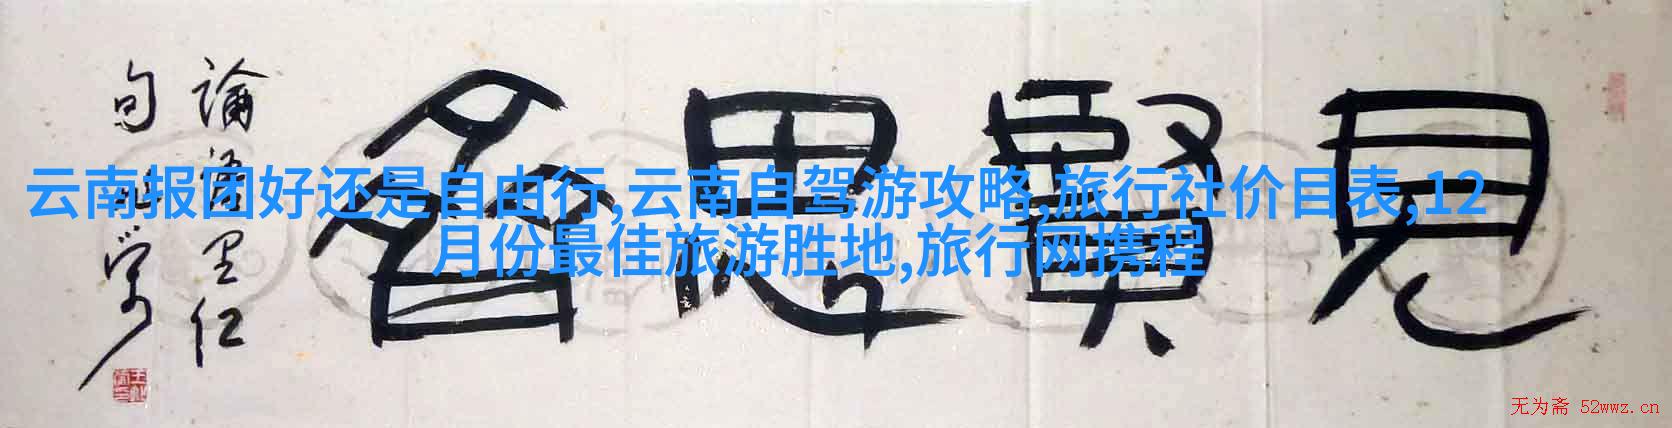 見賢思齊
論語里仁
句
云南报团好还是自由行,云南自驾游攻略,旅行社价目表,12
月份最佳旅游胜地,旅行网携程
无为斋 52wwz.cn